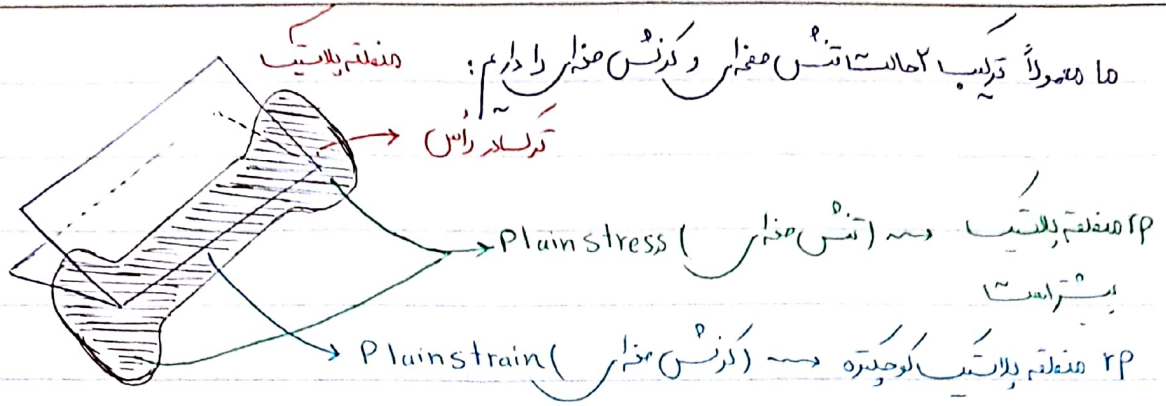 ما معمولاً ترکیب ۲ حالت تنش صفحه‌ای و کرنش صفحه‌ای را داریم:
منطقه پلاستیک
ترک در رأس
Plain stress (تنش صفحه‌ای) rp منطقه پلاستیک
بیشتر است
Plain strain (کرنش صفحه‌ای) rp منطقه پلاستیک کوچکتره